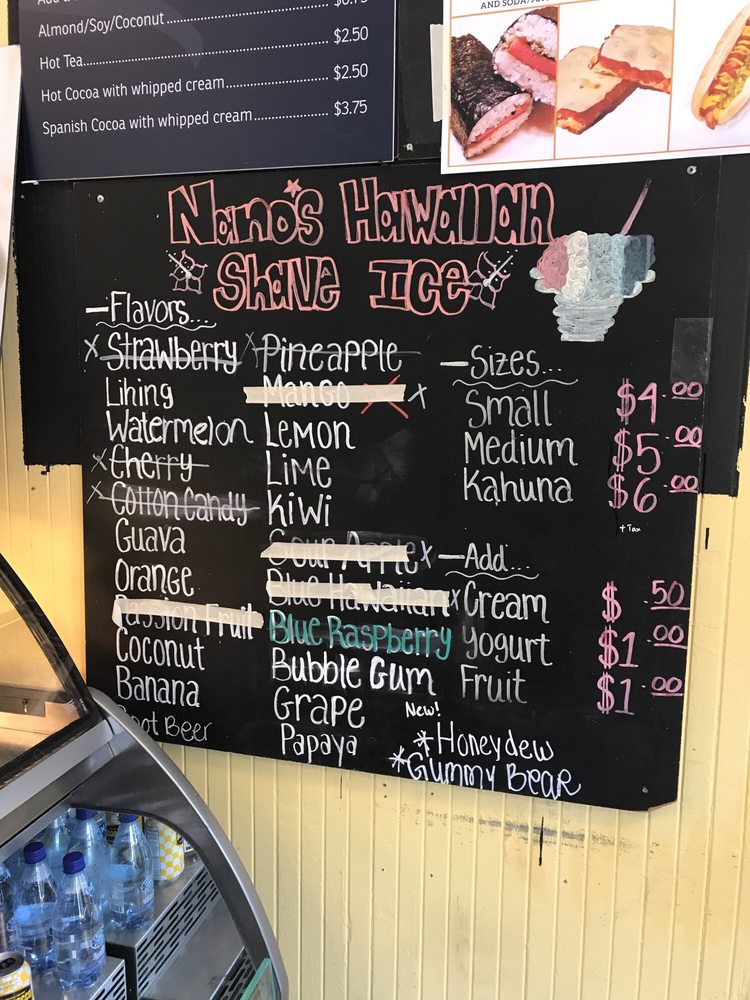 Almond/Soy/Coconut
Hot Tea
$2.50
Hot Cocoa with whipped cream
$2.50
Spanish Cocoa with whipped cream
$3.75
Nano's Hawaiian
Shave Ice
—Flavors...
Strawberry
Lihing
Watermelon
Cherry
Cotton Candy
Guava
Orange
Passion Fruit
Coconut
Banana
Root Beer
Pineapple
Mango
Lemon
Lime
Kiwi
Sour Apple
Blue Hawaiian
Blue Raspberry
Bubble Gum
Grape
Papaya
—Sizes...
Small $4.00
Medium $5.00
Kahuna $6.00
+ Tax
—Add...
Cream $.50
Yogurt $1.00
Fruit $1.00
New!
*Honeydew
*Gummy Bear